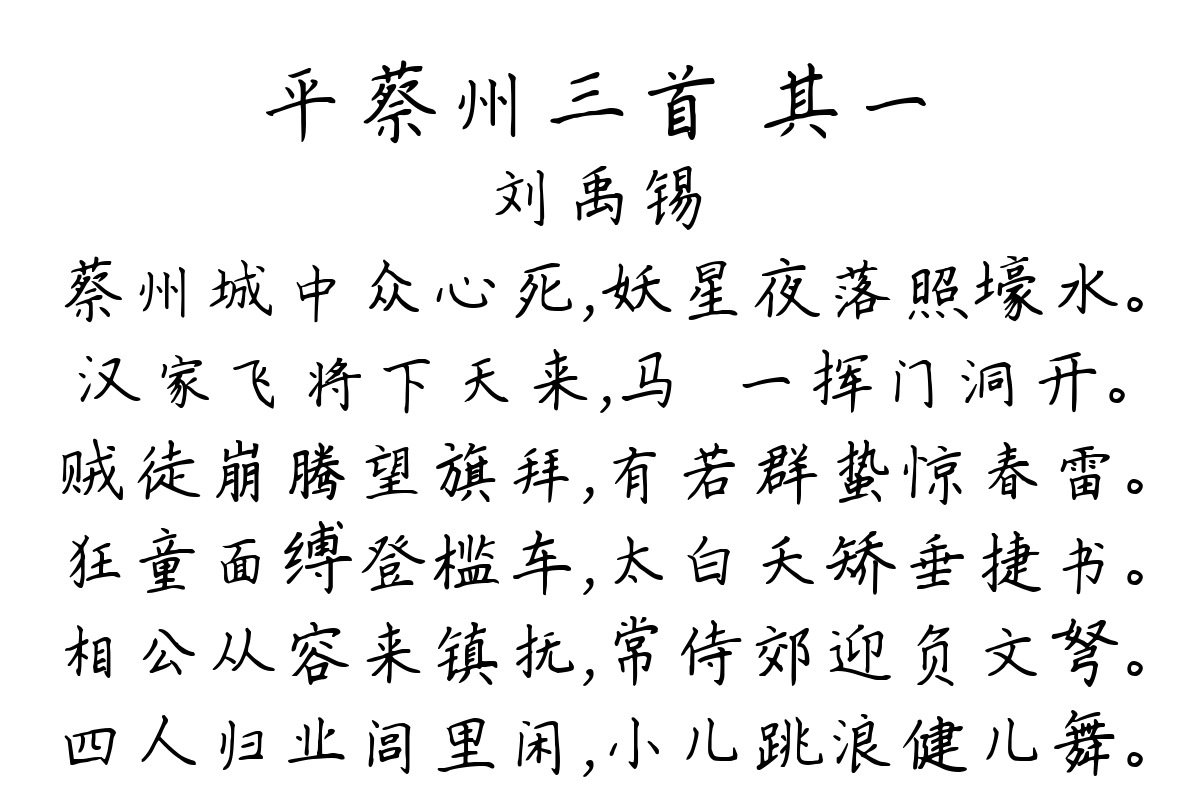 平蔡州三首 其一
刘禹锡
蔡州城中众心死,妖星夜落照壕水。
汉家飞将下天来,马 一挥门洞开。
贼徒崩腾望旗拜,有若群蛰惊春雷。
狂童面缚登槛车,太白夭矫垂捷书。
相公从容来镇抚,常侍郊迎负文弩。
四人归业闾里闲,小儿跳浪健儿舞。